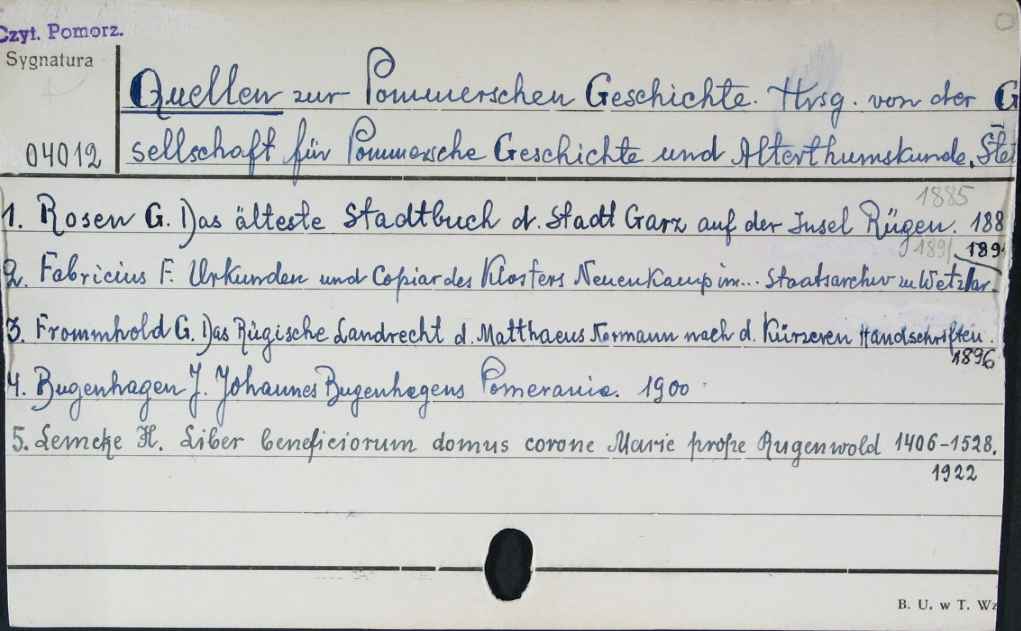 Czyt. Pomorz.
Sygnatura
Quellen zur Pommerschen Geschichte. Hrsg. von der G
04012 sellschaft für Pommersche Geschichte und Alterthumskunde, Stet
1885
1. Rosen G. Das älteste Stadtbuch d. Stadt Garz auf der Insel Rügen. 188
1891 189
2. Fabricius F. Urkunden und Copiar des Klosters Neuenkamp im... Staatsarchiv zu Wetzlar.
3. Frommhold G. Das Rügische Landrecht d. Matthaeus Normann nach d. Kürzeren Handschriften.
1896
4. Bugenhagen J. Johannes Bugenhagens Pomerania. 1900
5. Lemcke H. Liber beneficiorum domus corone Marie prope Rugenwold 1406-1528.
1922
B. U. w T. Wz